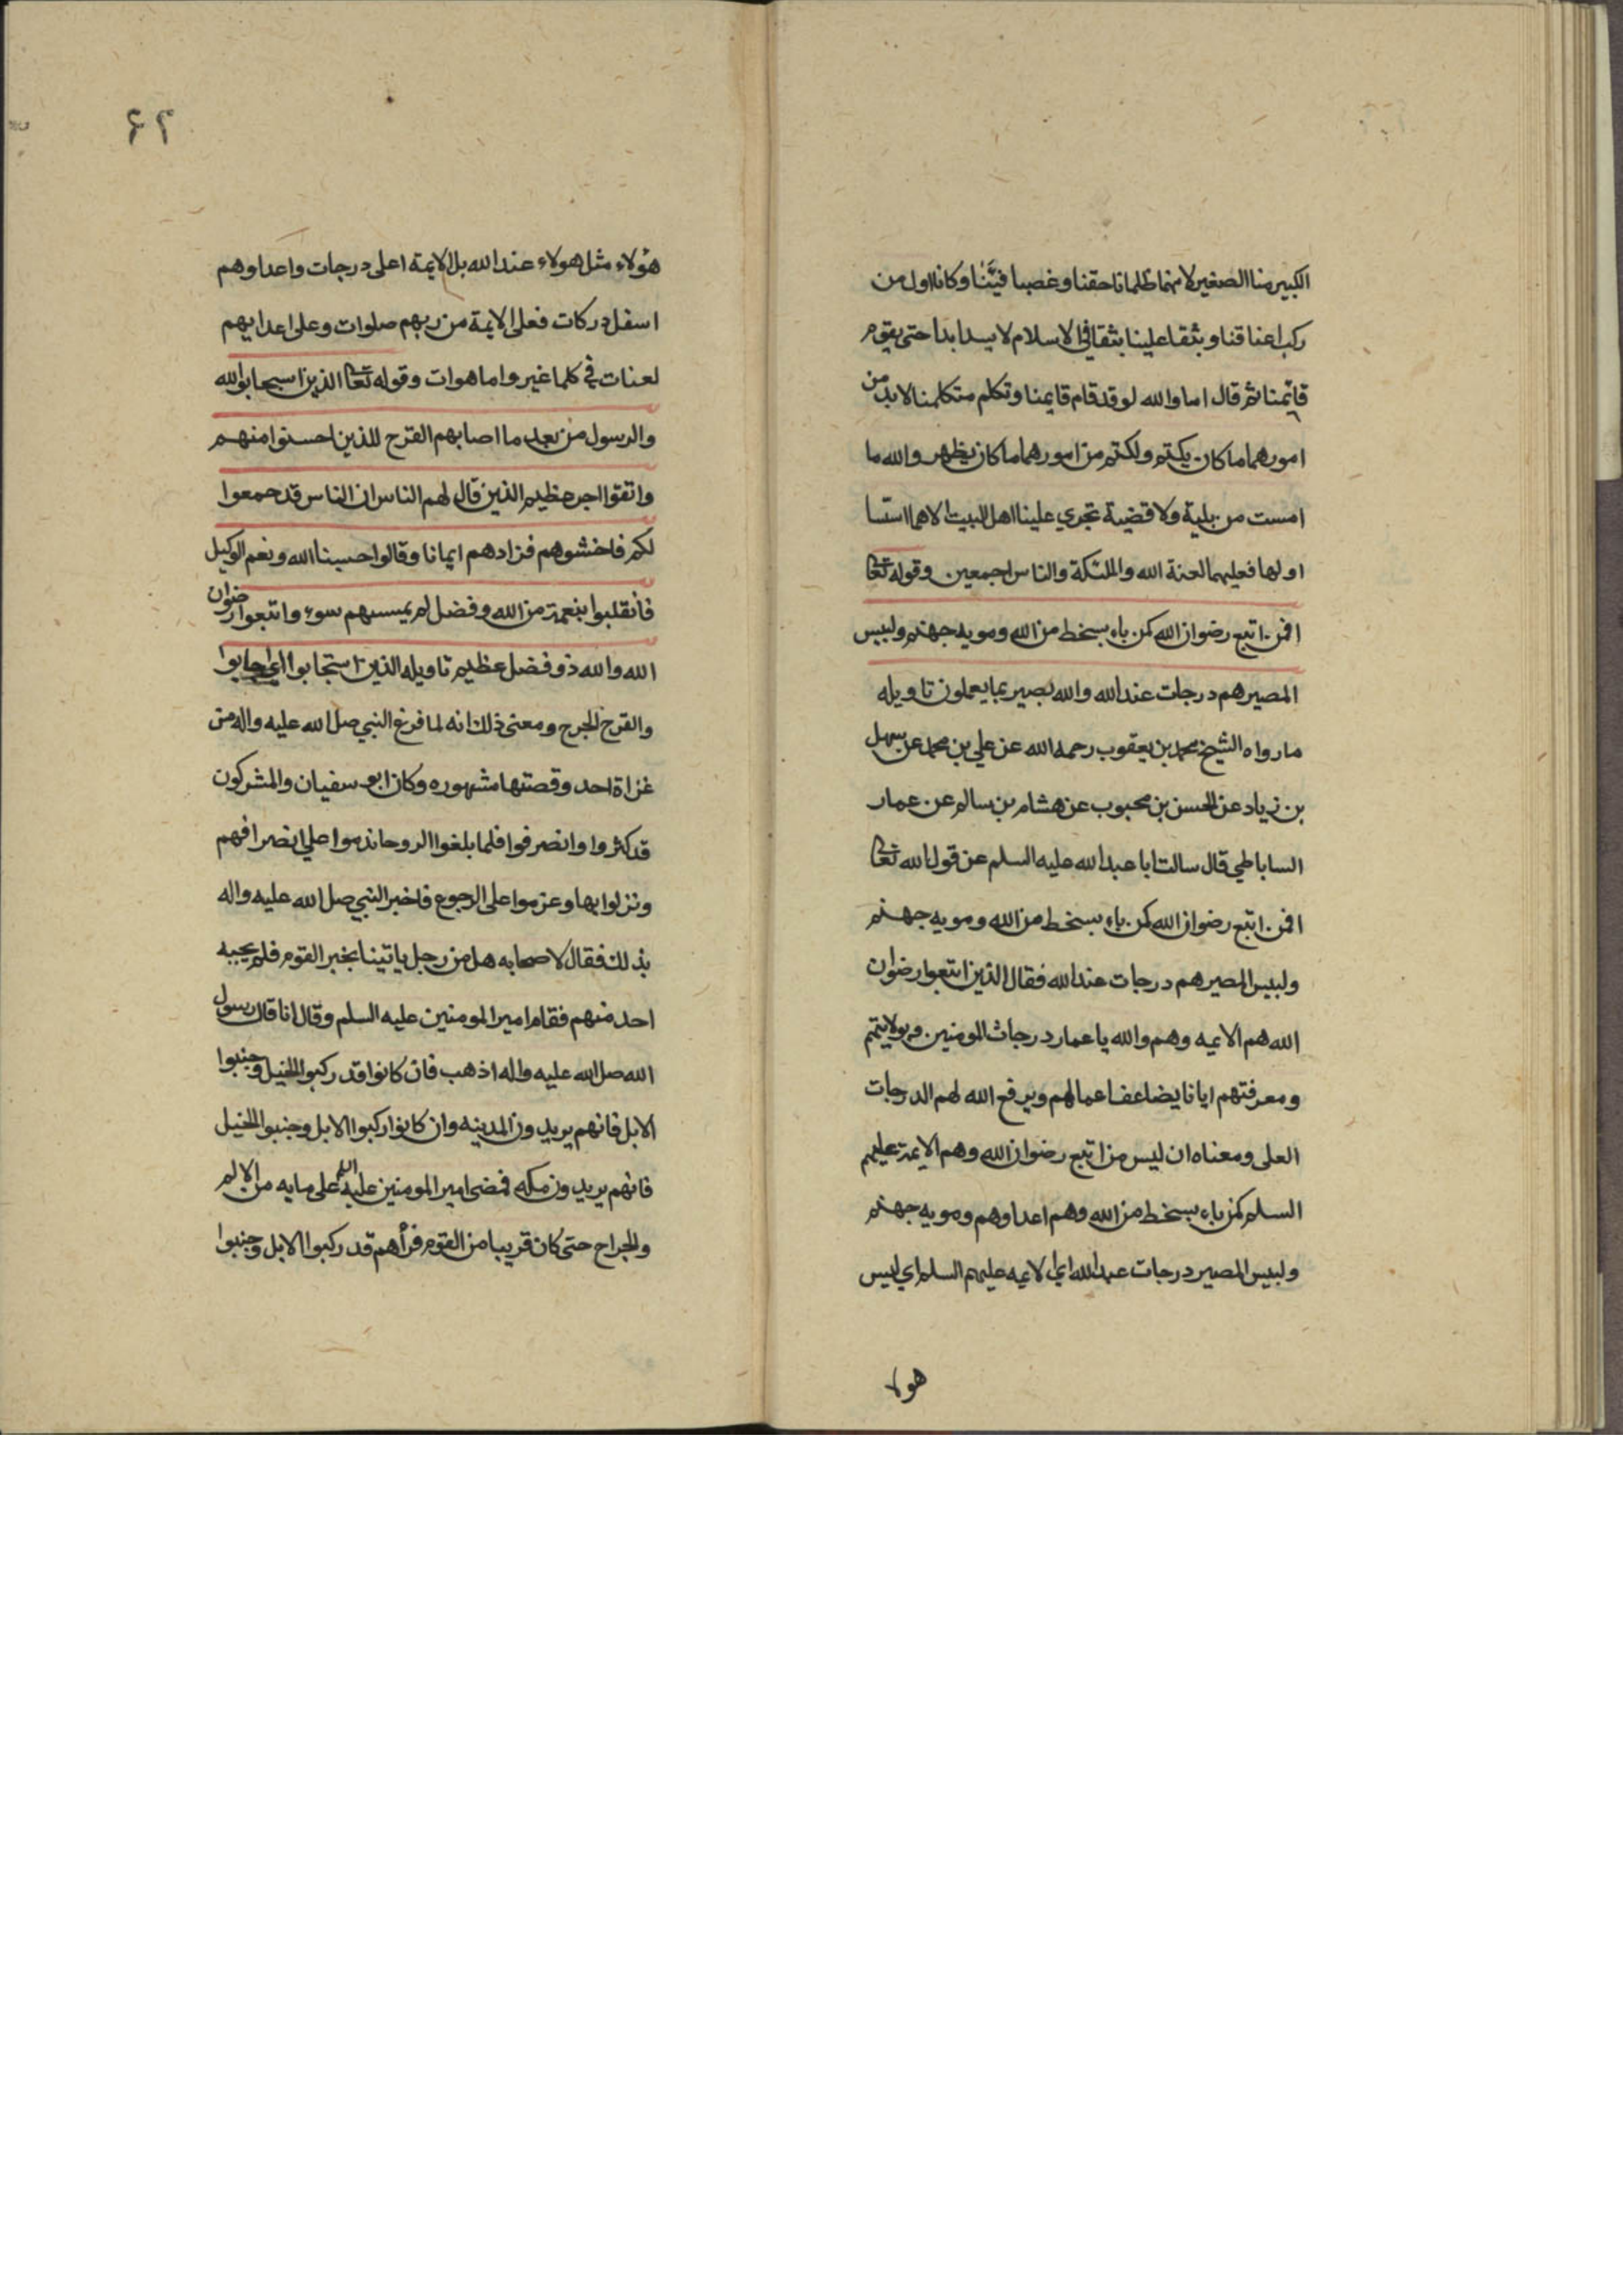 الكبير منا الصغير لانهما ظلمانا حقنا وغصبا فيئنا وكانا اول من
ركب اعناقنا وبثقا علينا بثقا في الاسلام لا يسد ابدا حتى يقوم
قائمنا ثم قال اما والله لو قد قام قايمنا وتكلم متكلمنا لابد من
امورهما ما كان يكتم ولكتم من امورهما ما كان يظهر والله ما
امست من بلية ولا قضية تجري علينا اهل البيت الا هما اسسا
اولها فعليهما لعنة الله والملئكة والناس اجمعين وقوله تعالى
افمن اتبع رضوان الله كمن باء بسخط من الله وماويه جهنم ولبيس
المصير هم درجات عند الله والله بصير بما يعملون تاويله
ما رواه الشيخ محمد بن يعقوب رحمه الله عن علي بن محمد عن سهل
بن زياد عن الحسن بن محبوب عن هشام بن سالم عن عمار
الساباطي قال سالت ابا عبد الله عليه السلم عن قول الله تعالى
افمن اتبع رضوان الله كمن باء بسخط من الله ومويه جهنم
ولبيس المصير هم درجات عند الله فقال الذين اتبعوا رضوان
الله هم الايمه وهم والله يا عمار درجات المومنين وبولايتهم
ومعرفتهم ايانا يضاعف اعمالهم ويرفع الله لهم الدرجات
العلى ومعناه ان ليس من اتبع رضوان الله وهم الايمة عليهم
السلم كمن باء بسخط من الله وهم اعداوهم ومويه جهنم
ولبيس المصير درجات عند الله اي الايمه عليهم السلم اي ليس
هولا
۶۲
هؤلاء مثل هولاء عند الله بل الايمة اعلى درجات واعداوهم
اسفل دركات فعلى الايمة من ربهم صلوات وعلى اعدايهم
لعنات في كلما غير وما هوات وقوله تعالى الذين اسبجابوا لله
والرسول من بعد ما اصابهم القرح للذين احسنوا منهم
واتقوا اجر عظيم الذين قال لهم الناس ان الناس قد جمعوا
لكم فاخشوهم فزادهم ايمانا وقالوا حسبنا الله ونعم الوكيل
فانقلبوا بنعمة من الله وفضل لم يمسسهم سوء واتبعوا رضوان
الله والله ذو فضل عظيم تاويله الذين استجابوا اي اجابوا
والقرح الجرح ومعنى ذلك انه لما فرغ النبي صلى الله عليه واله من
غزاة احد وقصتها مشهوره وكان ابو سفيان والمشركون
قد كثروا وانصرفوا فلما بلغوا الروحا ندموا على انصرافهم
ونزلوا بها وعزموا على الرجوع فاخبر النبي صلى الله عليه واله
بذلك فقال لاصحابه هل من رجل ياتينا بخبر القوم فلم يجيبه
احد منهم فقام امير المومنين عليه السلم وقال انا قال رسول
الله صلى الله عليه واله اذهب فان كانوا قد ركبوا الخيل وجنبوا
الابل فانهم يريدون المدينه وان كانوا ركبوا الابل وجنبوا الخيل
فانهم يريدون مكه فمضى امير المومنين عليه السلم على ما به من الالم
والجراح حتى كان قريبا من القوم فرأهم قد ركبوا الابل وجنبوا